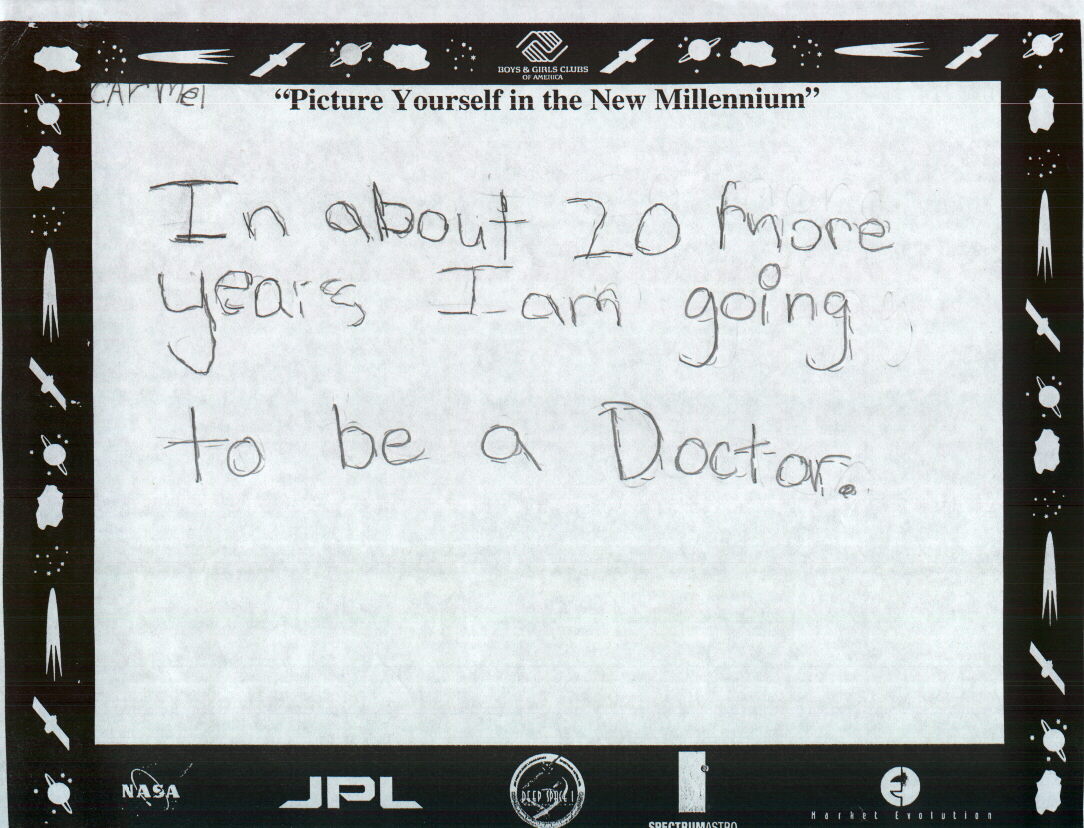 BOYS & GIRLS CLUBS
OF AMERICA
CARMel
“Picture Yourself in the New Millennium”
In about 20 more
years I am going
to be a Doctor.
NASA
JPL
DEEP SPACE 1
SPECTRUMASTRO
Market Evolution